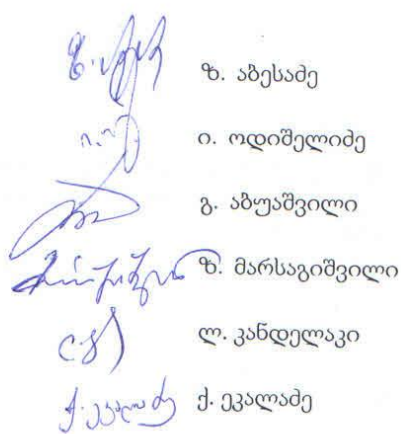 ზ. აბესაძე
ი. ოდიშელიძე
გ. აბუაშვილი
ზ. მარსაგიშვილი
ლ. კანდელაკი
ქ. ეკალაძე